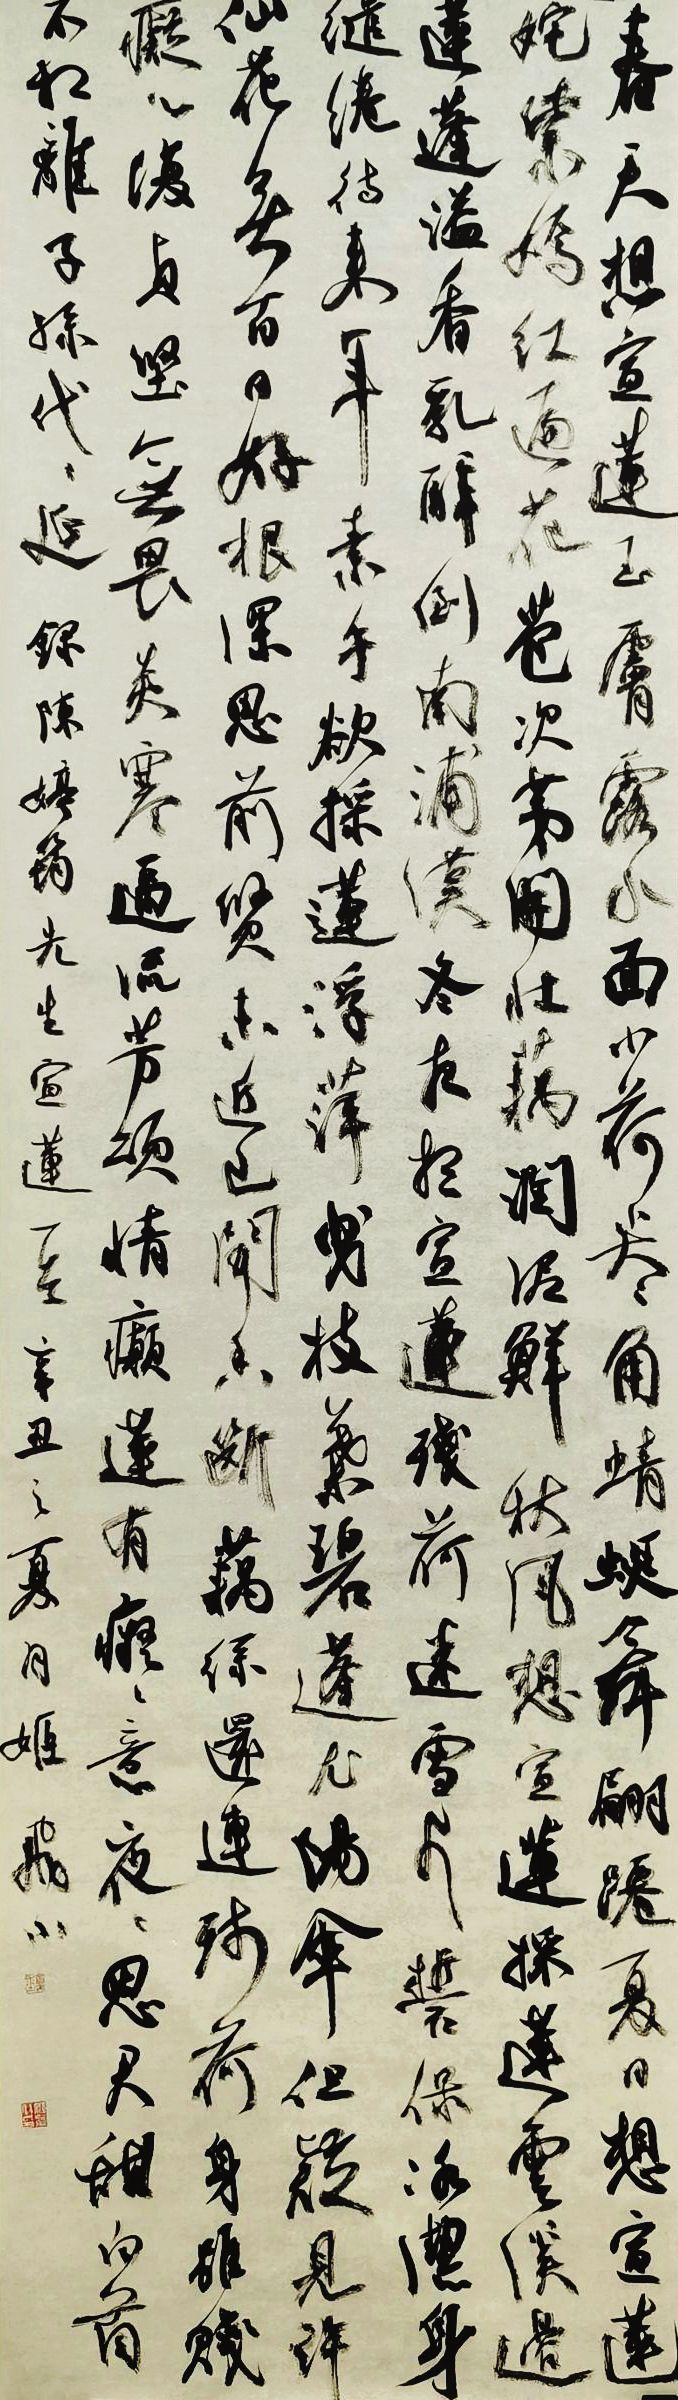 春天想宣蓮玉膚露水面小荷尖尖角蜻蜓舞翩躚夏日想宣蓮
姹紫嫣紅遍花苞次第開壯藕潤泥鮮秋風想宣蓮採蓮雲溪邊
蓮蓬溢香氣醉倒南浦漢冬夜想宣蓮殘荷迷雪片誓保冰潔身
繾綣待來年素手欲採蓮浮萍曳枝葉碧蓬作陽傘但疑見許
仙花無百日好根深思前賢未近已聞香斷藕絲還連殘荷身雖賤
癡心復貞堅無畏炎寒逼流芳頌情癲蓮有癡癡意夜夜思君甜白首
不相離子孫代代延錄陳婷筠先生宣蓮一首辛丑之夏月姬飛小